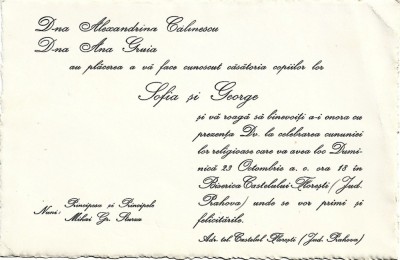 D-na Alexandrina Calinescu
D-na Ana Gruia
au plăcerea a vă face cunoscut căsătoria copiilor lor
Sofia și George
și vă roagă să binevoiți a-i onora cu
prezența Dv. la celebrarea cununiei
lor religioase care va avea loc Dumi-
nică 23 Octombrie a. c. ora 18 în
Biserica Castelului-Florești (Jud.
Prahova) unde se vor primi și
felicitările.
Nuni: Principesa și Principele
Mihai Gr. Sturza
Adr. tel. Castelul Florești (Jud. Prahova)